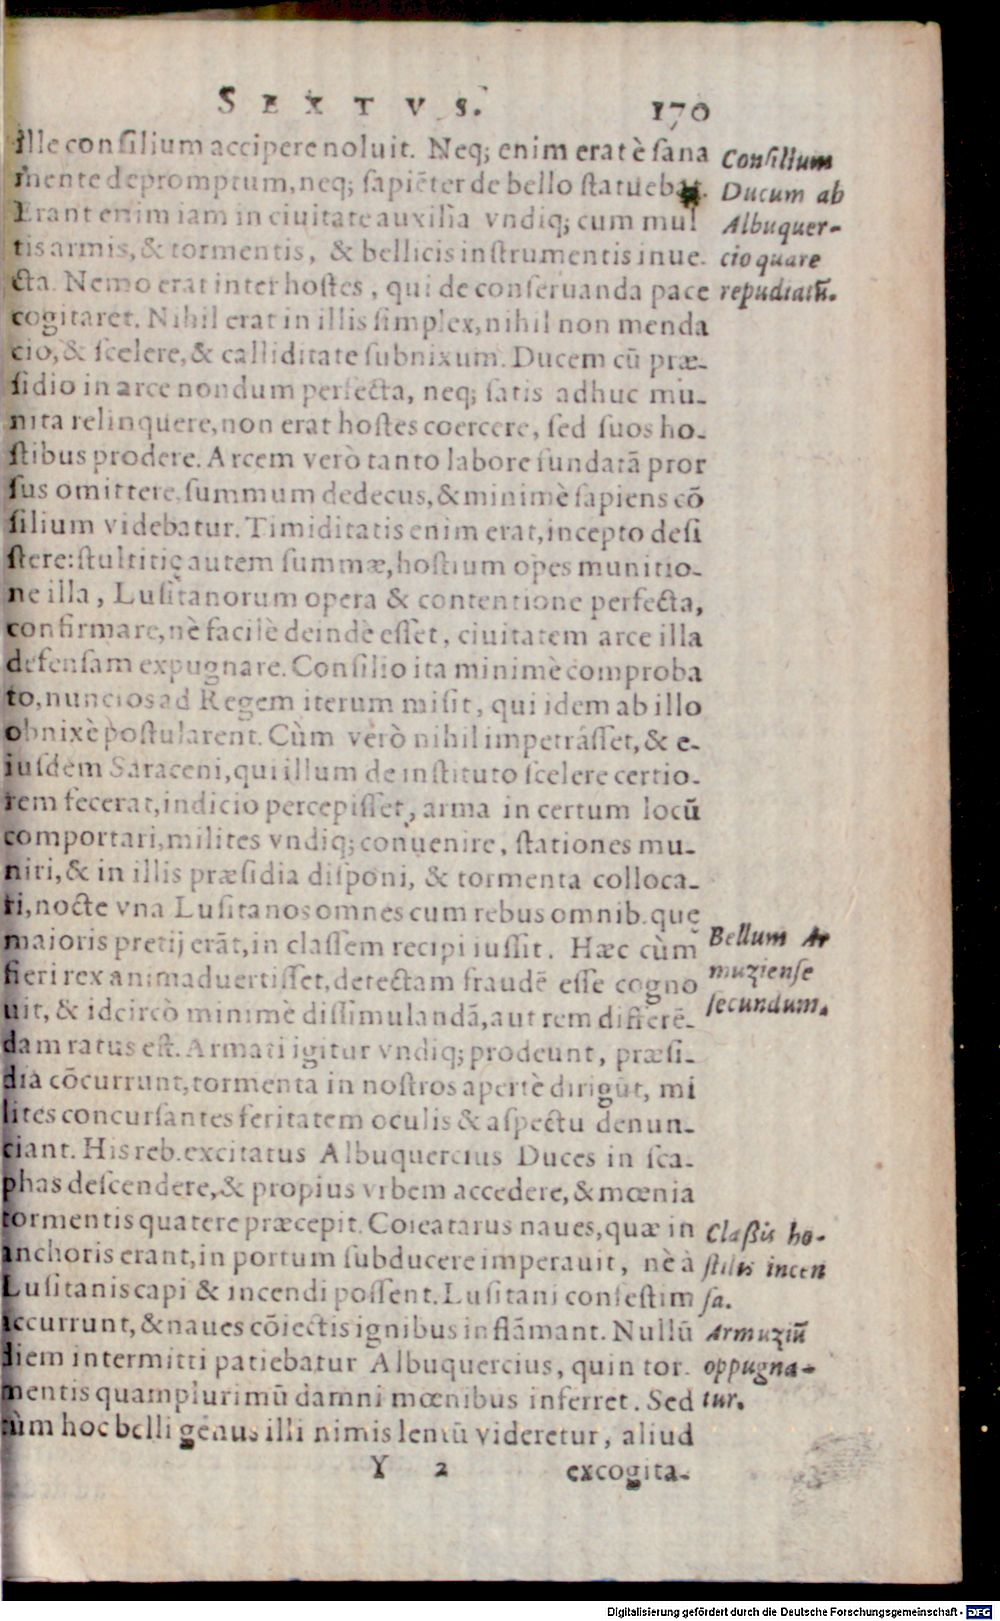 SEXTVS. 170
ille consilium accipere noluit. Neq; enim erat è sana
mente depromptum, neq; sapiẽter de bello statuebat.
Erant enim iam in ciuitate auxilia vndiq; cum mul
tis armis, & tormentis, & bellicis instrumentis inue-
cta. Nemo erat inter hostes, qui de conseruanda pace
cogitaret. Nihil erat in illis simplex, nihil non menda
cio, & scelere, & calliditate subnixum. Ducem cũ præ-
sidio in arce nondum perfecta, neq; satis adhuc mu-
nita relinquere, non erat hostes coercere, sed suos ho-
stibus prodere. Arcem verò tanto labore fundatã pror
sus omittere, summum dedecus, & minimè sapiens cõ
silium videbatur. Timiditatis enim erat, incepto desi
stere: stultitię autem summæ, hostium opes munitio-
ne illa, Lusitanorum opera & contentione perfecta,
confirmare, nè facilè deindè esset, ciuitatem arce illa
defensam expugnare. Consilio ita minimè comproba
to, nuncios ad Regem iterum misit, qui idem ab illo
obnixè postularent. Cùm verò nihil impetrâsset, & e-
iusdem Saraceni, qui illum de instituto scelere certio-
rem fecerat, indicio percepisset, arma in certum locũ
comportari, milites vndiq; conuenire, stationes mu-
niri, & in illis præsidia disponi, & tormenta colloca-
ri, nocte vna Lusitanos omnes cum rebus omnib. quę
maioris pretij erãt, in classem recipi iussit. Hæc cùm
fieri rex animaduertisset, detectam fraudẽ esse cogno
uit, & idcircò minimè dissimulandã, aut rem differẽ-
dam ratus est. Armati igitur vndiq; prodeunt, præsi-
dia cõcurrunt, tormenta in nostros apertè dirigũt, mi
lites concursantes feritatem oculis & aspectu denun-
ciant. His reb. excitatus Albuquercius Duces in sca-
phas descendere, & propius vrbem accedere, & mœnia
tormentis quatere præcepit. Coieatarus naues, quæ in
anchoris erant, in portum subducere imperauit, nè à
Lusitanis capi & incendi possent. Lusitani confestim
accurrunt, & naues cõiectis ignibus inflãmant. Nullũ
diem intermitti patiebatur Albuquercius, quin tor-
mentis quamplurimũ damni mœnibus inferret. Sed
cùm hoc belli genus illi nimis lentũ videretur, aliud
Y 2 excogita-
Consilium
Ducum ab
Albuquer-
cio quare
repudiatũ.
Bellum Ar
muziense
secundum.
Classis ho-
stilis incen
sa.
Armuziũ
oppugna-
tur.
Digitalisierung gefördert durch die Deutsche Forschungsgemeinschaft - DFG